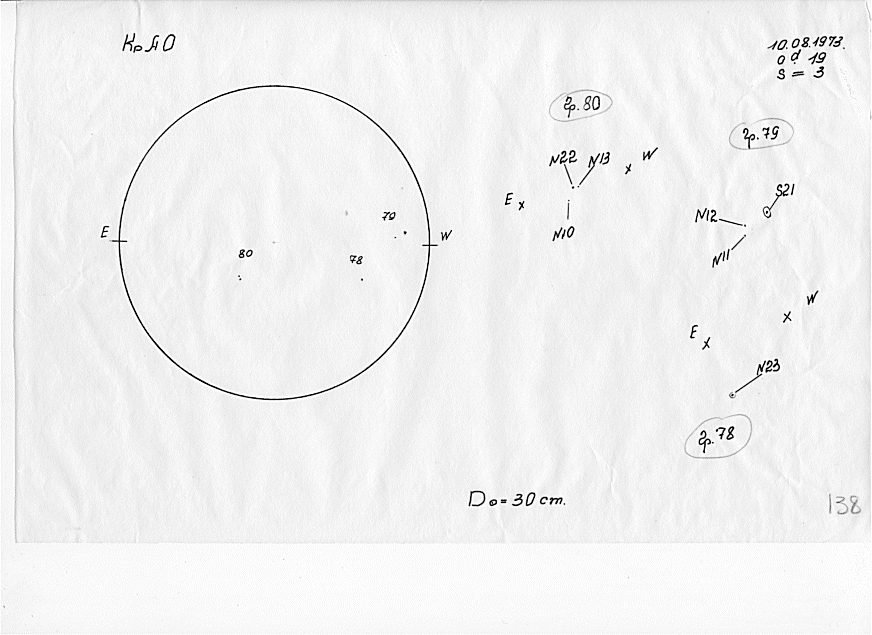 КрАО
10.08.1973.
0 d 19
S = 3
гр. 80
гр. 79
N22
N13
W
E
N10
S21
N12
N11
79
E
W
80
78
W
E
N23
гр. 78
D⊙ = 30 cm.
138